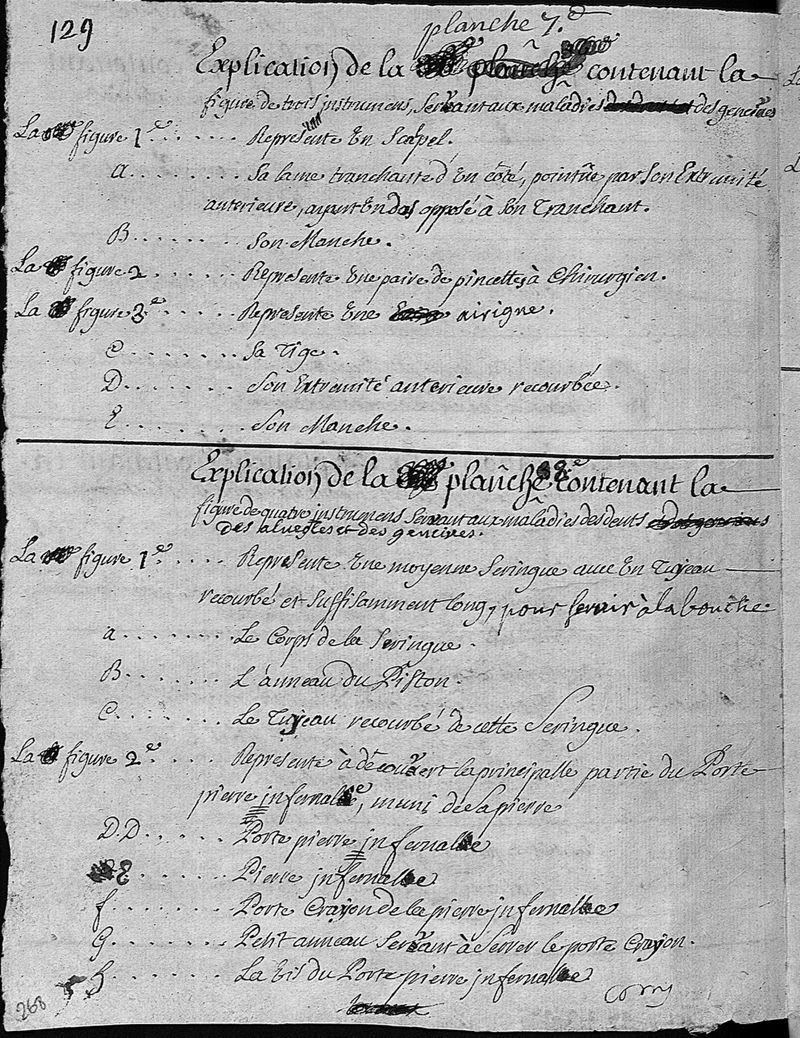 129
planche 7.e
Explication de la planche contenant la
figure de trois instrumens, servant aux maladies des gencives
La figure 1.e . . . . . . Represente un Scapel.
a . . . . . . . . Sa lame tranchante d'un côté, pointüe par son Extremité
anterieure, ayant un dos opposé à son Tranchant.
B . . . . . . Son Manche.
La figure 2 . . . . . . Represente une paire de pincettes à Chirurgien.
La figure 3.e . . . . . Represente une airigne.
C . . . . . . . . Sa Tige.
D . . . . . . . Son Extremité anterieure recourbée.
E . . . . . . . Son Manche.
Explication de la planche 8.e contenant la
figure de quatre instrumens servant aux maladies des dents
des alveoles et des gencives.
La figure 1.e . . . . . Represente une moyenne Seringue avec un Tujeau
recourbé et suffisamment long, pour servir à la bouche.
a . . . . . . . . Le Corps de la Seringue.
B . . . . . . . L'anneau du Piston.
C . . . . . . . Le Tujeau recourbé de cette Seringue.
La figure 2.e . . . . . Represente à découvert la principalle partie du Porte
pierre infernale, muni de sa pierre
D.D . . . . . . Porte pierre infernale
E . . . . . . Pierre infernale
f . . . . . . . Porte Crayon de la pierre infernale
G . . . . . . . Petit anneau servant à serrer le porte Crayon.
h . . . . . . . La vis du Porte pierre infernale
268